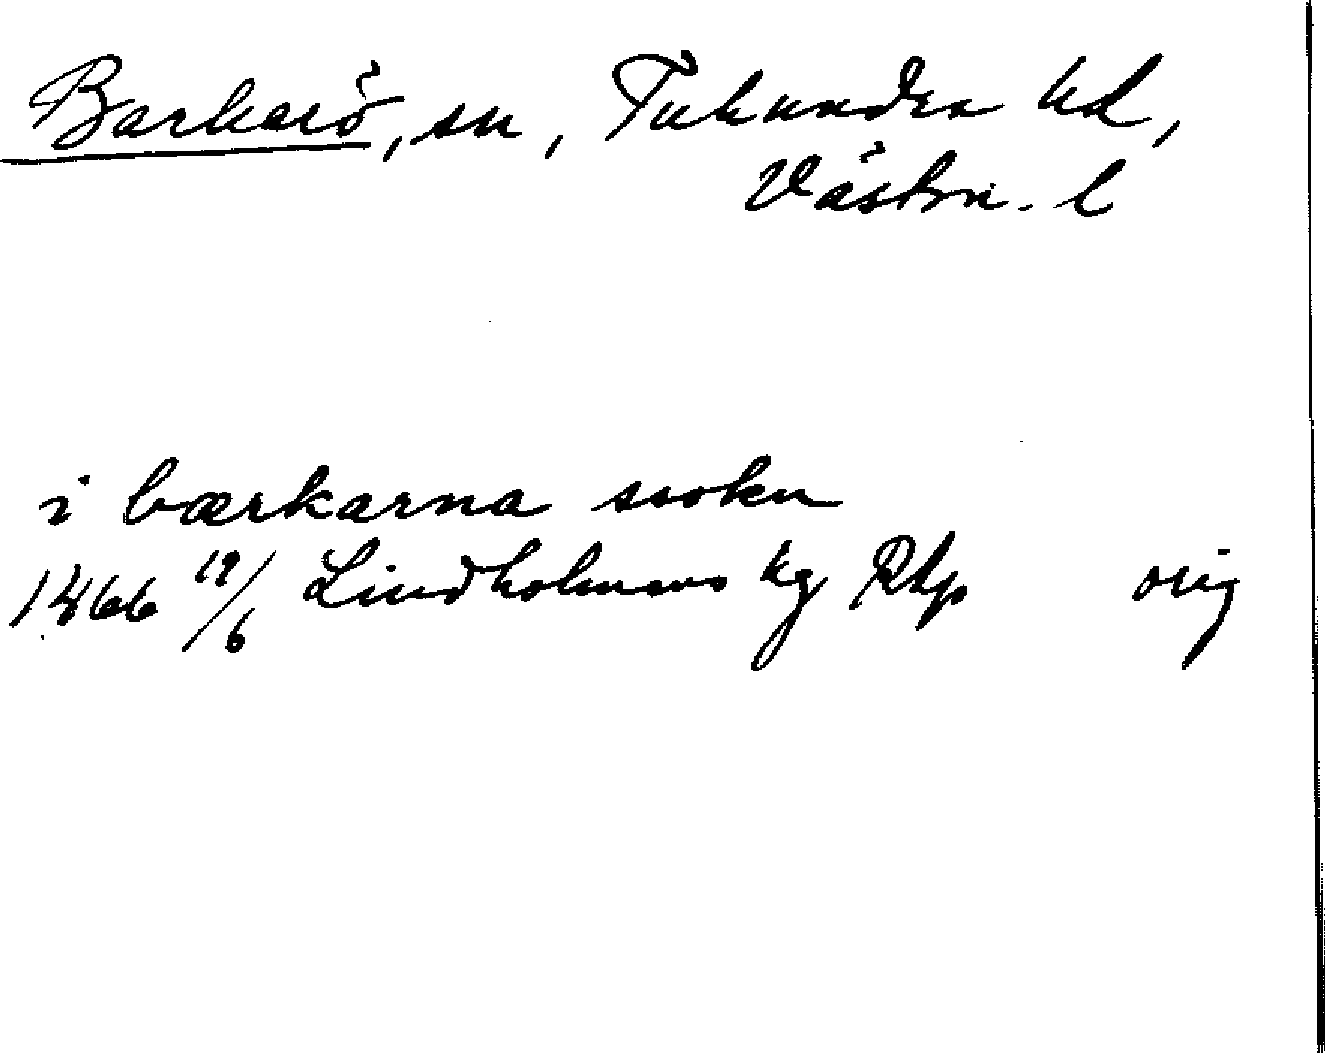 Barkarö, sn, Tuhundra hd,
Västm. l
i bærkarna sokn
1466 19/6 Lindholmens kg Rkp orig